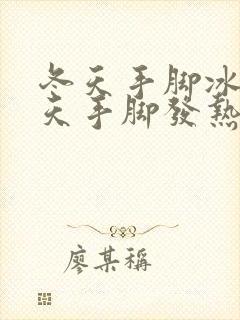 冬天手脚冰
天手脚發熱
廖某稱